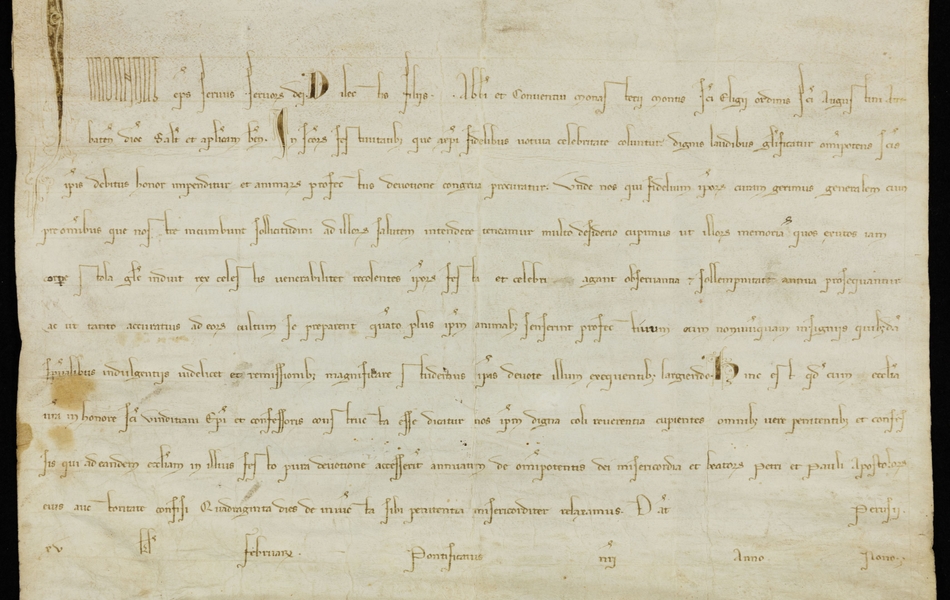 INNOCENTIUS eps Servus Servorꝝ dei. Dilectis filiis .. Abbti et Conventui monasterii montis Sci Eligii ordinis Sci Augustini
baten̄ dioc Salt et aplicam ben̄. In Scorꝝ festivitatibꝫ que a xpi fidelibus votiva celebritate coluntur dignis laudibus glificatur omipotens
ipis debitus honor impenditur et animarꝝ profectus devotione congrua procuratur. Unde nos qui fidelium iporꝝ curam gerimus generalem cum
pre omibus que nostre incumbunt sollicitudini ad illorꝝ salutem intendere teneamur multo desiderio cupimus ut illorꝝ memoria quos eternes iam
stola gle induit rex celestis venerabiliter recolentes iporꝝ festa et celebri agant observantia ⁊ sollempnitate annua prosequantur
ac ut tanto accuratius ad eorꝝ cultum se preparent quato plus ipm animabꝫ senserint profecturum eum nonnuquam insigniis quibꝫda
spualibus indulgentiis videlicet et remissionibꝫ magnificare studemus ipis devote illum exequentibꝫ largiendo. Hinc est qd cum ecclia
vra in honore Sci Vinditiani Epi et confessoris constructa esse dicatur nos ipm digna coli reverentia cupientes omnibꝫ vere penitentibꝫ et confes
sis qui ad eandem eccliam in illius festo pura devotione accesserit annuatim de omipotentis dei misericordia et beatorꝝ Petri et Pauli Apostolorꝝ
eius auctoritate confisi Quadraginta dies de iniucta sibi penitentia misericorditer relaxamus. Dat Perusii.
xv kl februarii. Pontificatus nri Anno Nono.